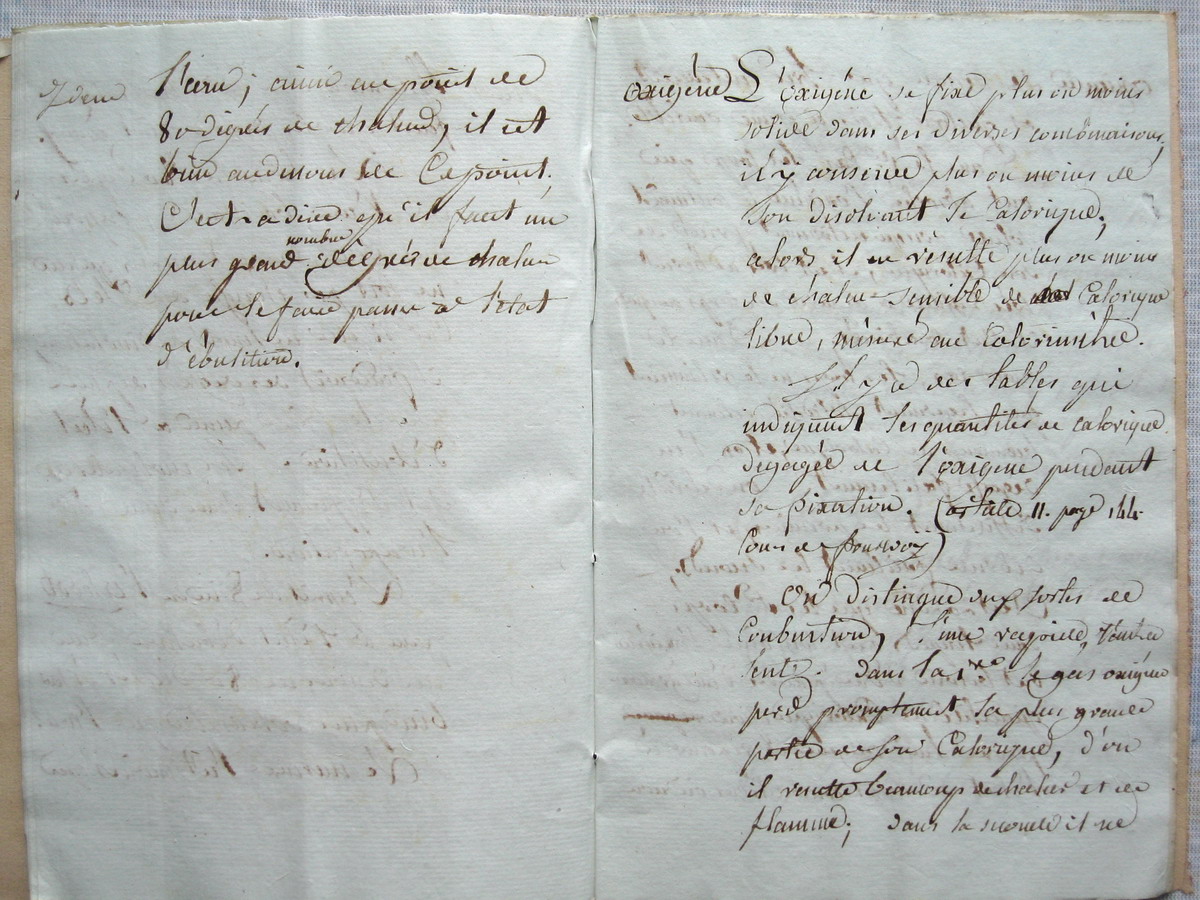 Idem
l'eau; ainsi au point de
80 degrés de chaleur, il est
bien audessous de ce point.
C'est a dire qu'il faut un
plus grand nombre de degrés de chaleur
pour le faire passer à l'état
d'ébulition.
oxigène L'oxigène se fixe plus ou moins
solide dans ses diverses combinaisons,
il y conserve plus ou moins de
son disolvant le Calorique;
alors il en résulte plus ou moins
de chaleur sensible de Calorique
libre, mésuré au Calorimètre.
Il y a des tables qui
indiquent les quantités de calorique
dégagée de l'oxigene pendant
sa fixation. 11. page 144.
Cours de fourcroy)
On distingue deux sortes de
Conbustion, l'une rapide, l'autre
lente. dans la 1re le gas oxigene
perd promptement la plus grande
partie de son Calorique, d'ou
il resulte beaucoup de chaleur et de
flamme; dans la seconde il ne